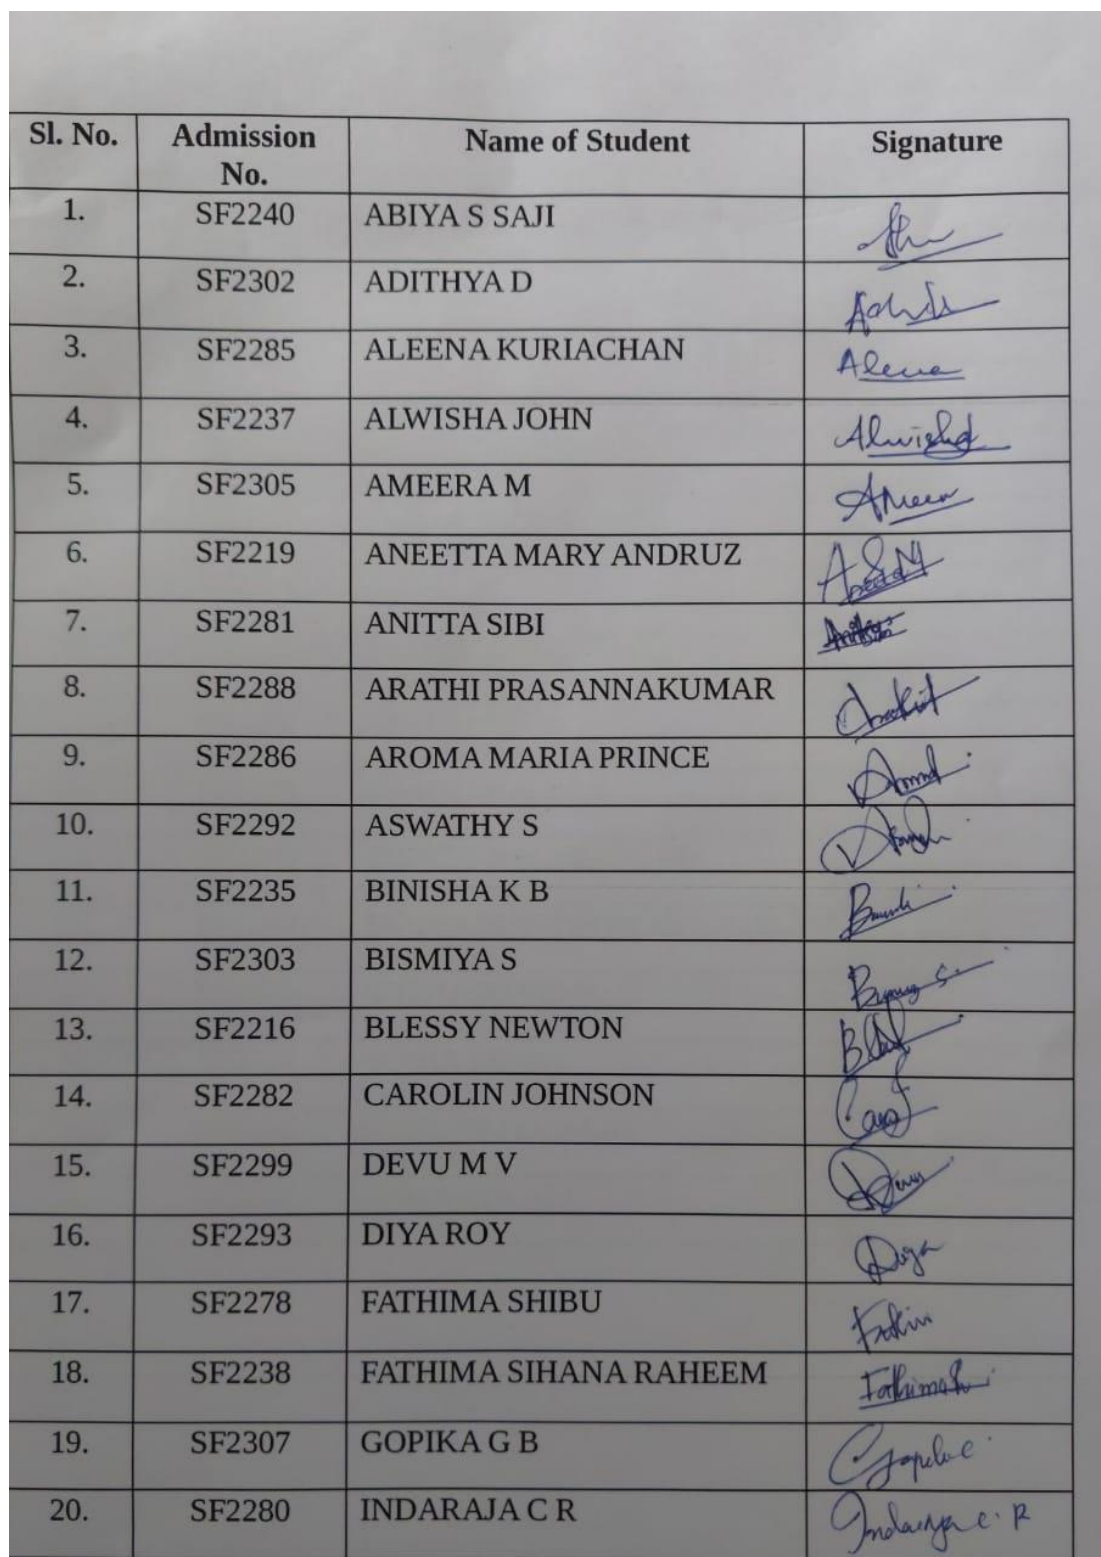 Sl. No. Admission No. Name of Student Signature
1. SF2240 ABIYA S SAJI
2. SF2302 ADITHYA D
3. SF2285 ALEENA KURIACHAN
4. SF2237 ALWISHA JOHN Alwisha
5. SF2305 AMEERA M
6. SF2219 ANEETTA MARY ANDRUZ
7. SF2281 ANITTA SIBI
8. SF2288 ARATHI PRASANNAKUMAR
9. SF2286 AROMA MARIA PRINCE
10. SF2292 ASWATHY S
11. SF2235 BINISHA K B
12. SF2303 BISMIYA S
13. SF2216 BLESSY NEWTON
14. SF2282 CAROLIN JOHNSON
15. SF2299 DEVU M V
16. SF2293 DIYA ROY Diya
17. SF2278 FATHIMA SHIBU
18. SF2238 FATHIMA SIHANA RAHEEM
19. SF2307 GOPIKA G B
20. SF2280 INDARAJA C R